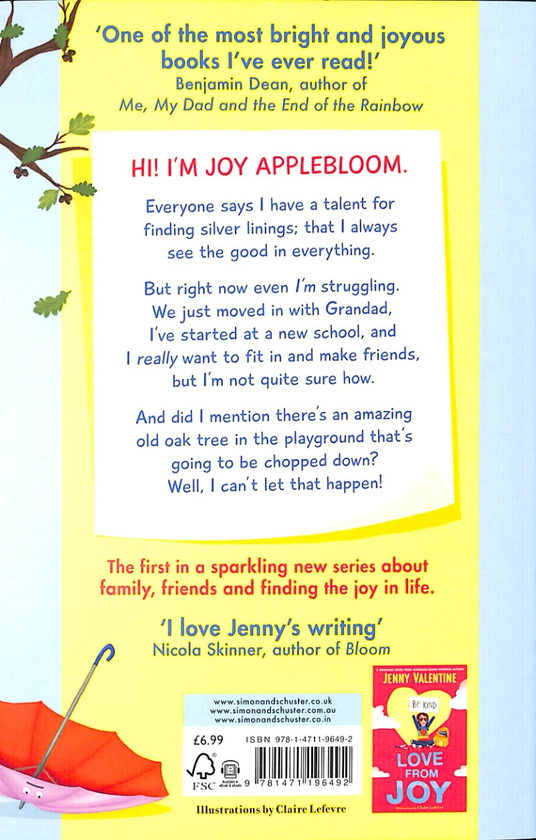 ‘One of the most bright and joyous
books I’ve ever read!’
Benjamin Dean, author of
Me, My Dad and the End of the Rainbow
HI! I’M JOY APPLEBLOOM.
Everyone says I have a talent for
finding silver linings; that I always
see the good in everything.
But right now even I’m struggling.
We just moved in with Grandad,
I’ve started at a new school, and
I really want to fit in and make friends,
but I’m not quite sure how.
And did I mention there’s an amazing
old oak tree in the playground that’s
going to be chopped down?
Well, I can’t let that happen!
The first in a sparkling new series about
family, friends and finding the joy in life.
‘I love Jenny’s writing’
Nicola Skinner, author of Bloom
www.simonandschuster.co.uk
www.simonandschuster.com.au
www.simonandschuster.co.in
£6.99
ISBN 978-1-4711-9649-2
FSC
9 781471 196492
Illustrations by Claire Lefevre
JENNY VALENTINE
BE KIND
LOVE
FROM
JOY